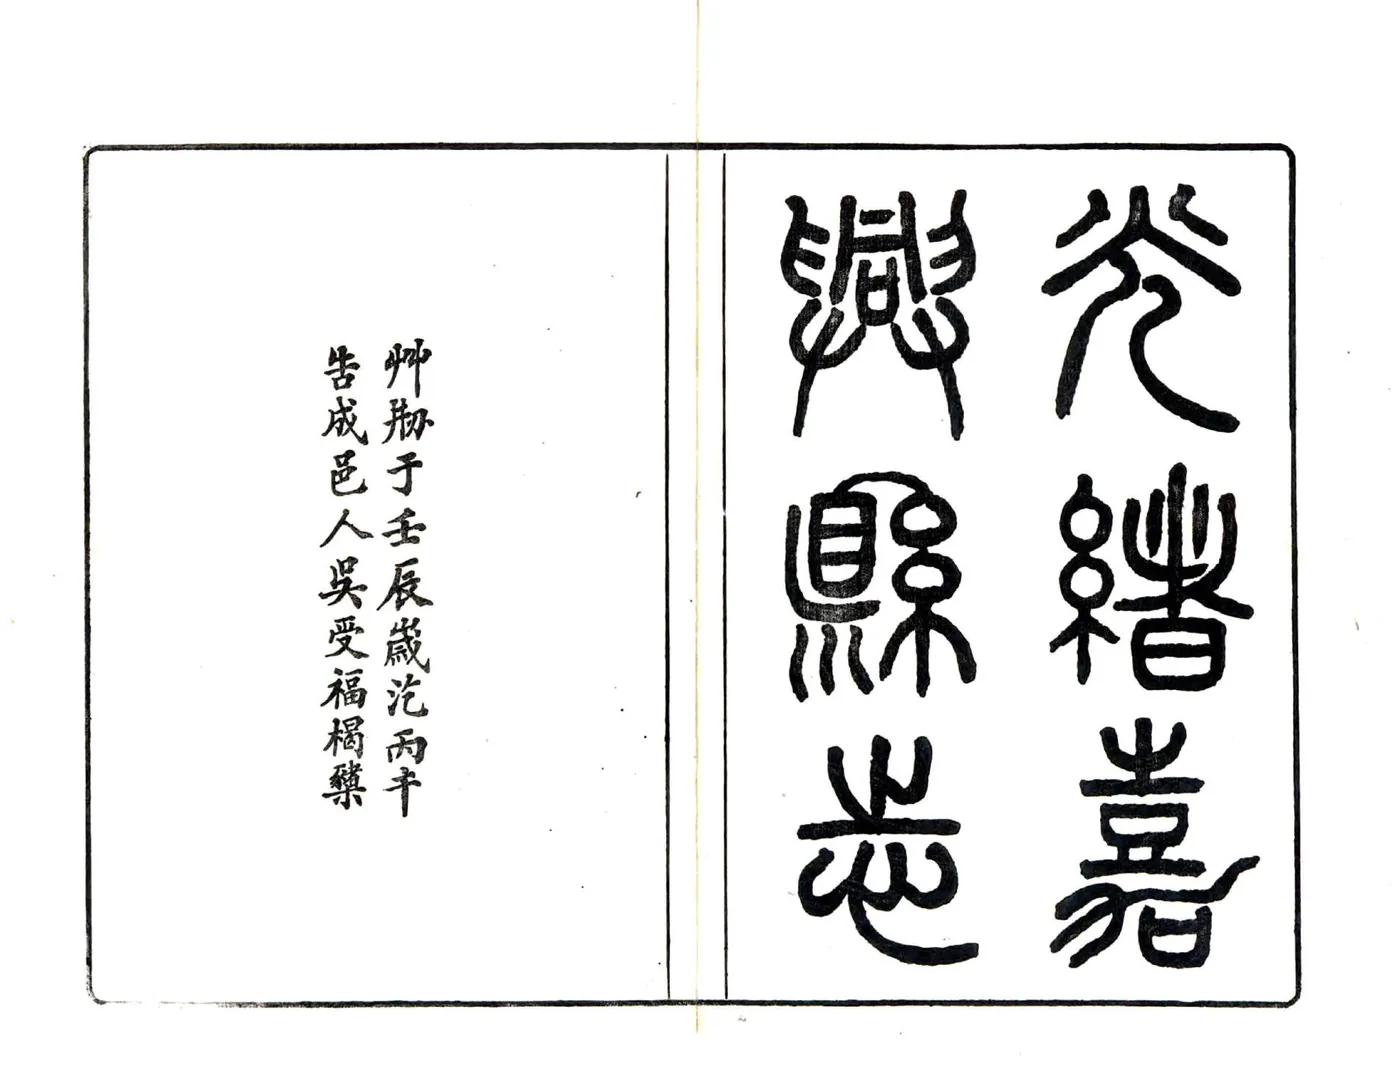 光緒嘉
興縣志
艸刱于壬辰歲汔丙午
告成邑人吳受福楬櫫